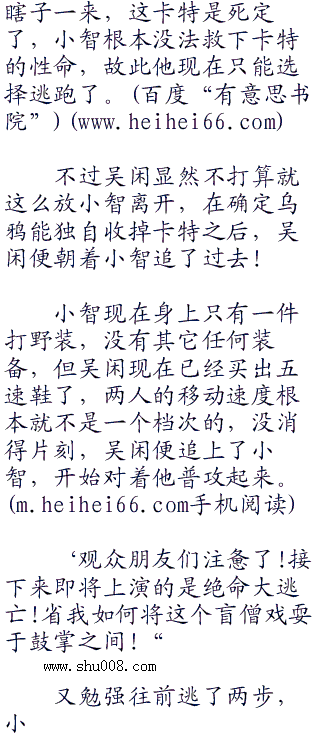 瞎子一来，这卡特是死定
了，小智根本没法救下卡特
的性命，故此他现在只能选
择逃跑了。(百度“有意思书
院”)(www.heihei66.com)
不过吴闲显然不打算就
这么放小智离开，在确定乌
鸦能独自收掉卡特之后，吴
闲便朝着小智追了过去！
小智现在身上只有一件
打野装，没有其它任何装
备，但吴闲现在已经买出五
速鞋了，两人的移动速度根
本就不是一个档次的，没消
得片刻，吴闲便追上了小
智，开始对着他普攻起来。
(m.heihei66.com手机阅读)
‘观众朋友们注意了!接
下来即将上演的是绝命大逃
亡!省我如何将这个盲僧戏耍
于鼓掌之间！“
www.shu008.com
又勉强往前逃了两步，
小